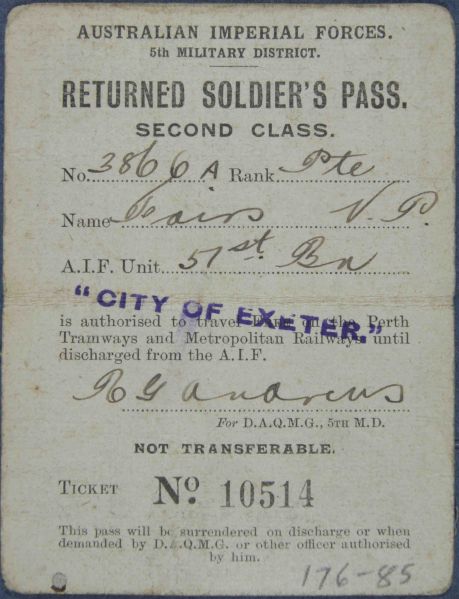 AUSTRALIAN IMPERIAL FORCES.
5th MILITARY DISTRICT.
RETURNED SOLDIER'S PASS.
SECOND CLASS.
No. 3866 A Rank Pte
Name Fairs V. P.
A.I.F. Unit 51st Bn
"CITY OF EXETER."
is authorised to travel FREE on the Perth
Tramways and Metropolitan Railways until
discharged from the A.I.F.
R G Andrews
For D.A.Q.M.G., 5TH M.D.
NOT TRANSFERABLE.
TICKET No. 10514
This pass will be surrendered on discharge or when
demanded by D.A.Q.M.G. or other officer authorised
by him.
176-85